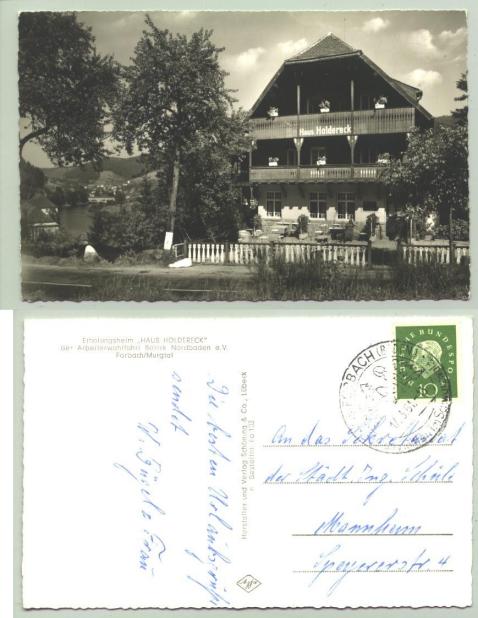 Haus Holdereck
Erholungsheim „HAUS HOLDERECK"
der Arbeiterwohlfahrt Bezirk Nordbaden e.V.
Forbach/Murgtal
Die besten Urlaubsgrüße
sendet
u. Frau
Hersteller und Verlag Schöning & Co., Lübeck
DEUTSCHE BUNDESPOST
10
FORBACH
An das Sekretariat
der Städt. Ing. Schule
Mannheim
Speyererstr. 4